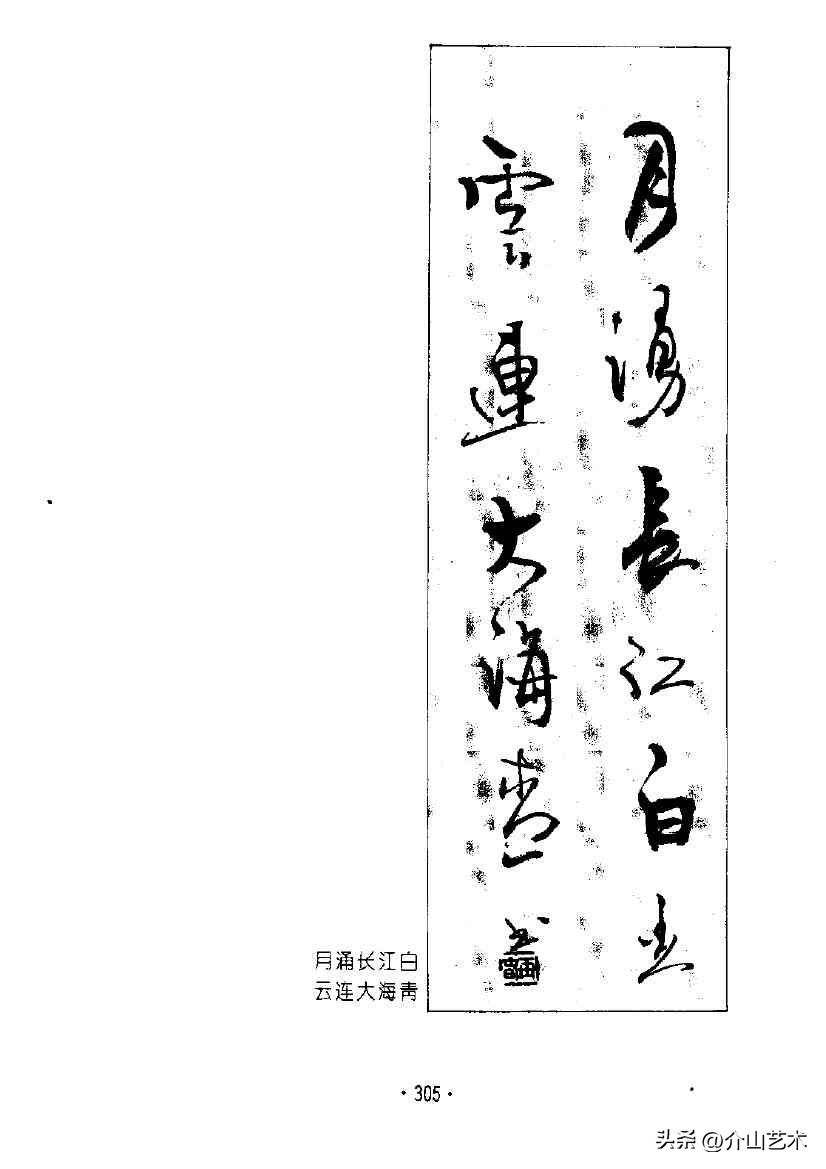 月湧長江白
雲連大海青
月涌长江白
云连大海青
·305·
头条 @介山艺术